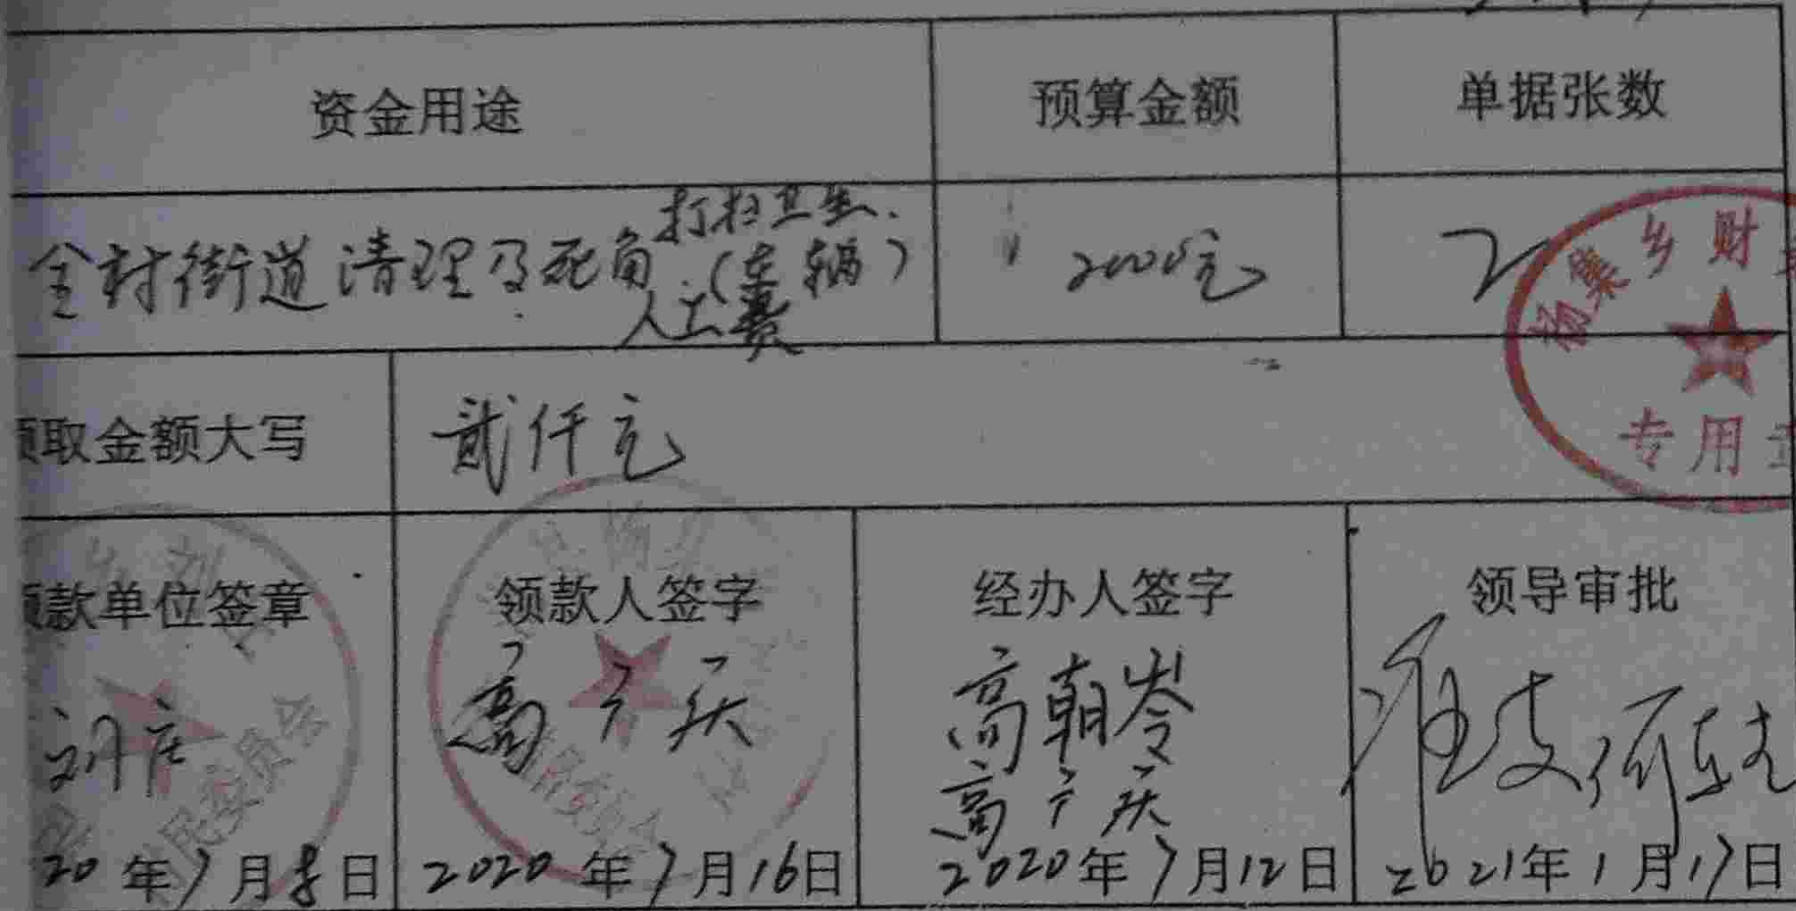 资金用途 预算金额 单据张数
全村街道清理及死角打扫卫生.
(车辆)
人工费
2000元 2
杨集乡财
专用
取金额大写 贰仟元
款单位签章 领款人签字 经办人签字 领导审批
刘庄 高广庆 高朝岑
高广庆
民委员会
20年7月8日 2020年7月16日 2020年7月12日 2021年1月17日